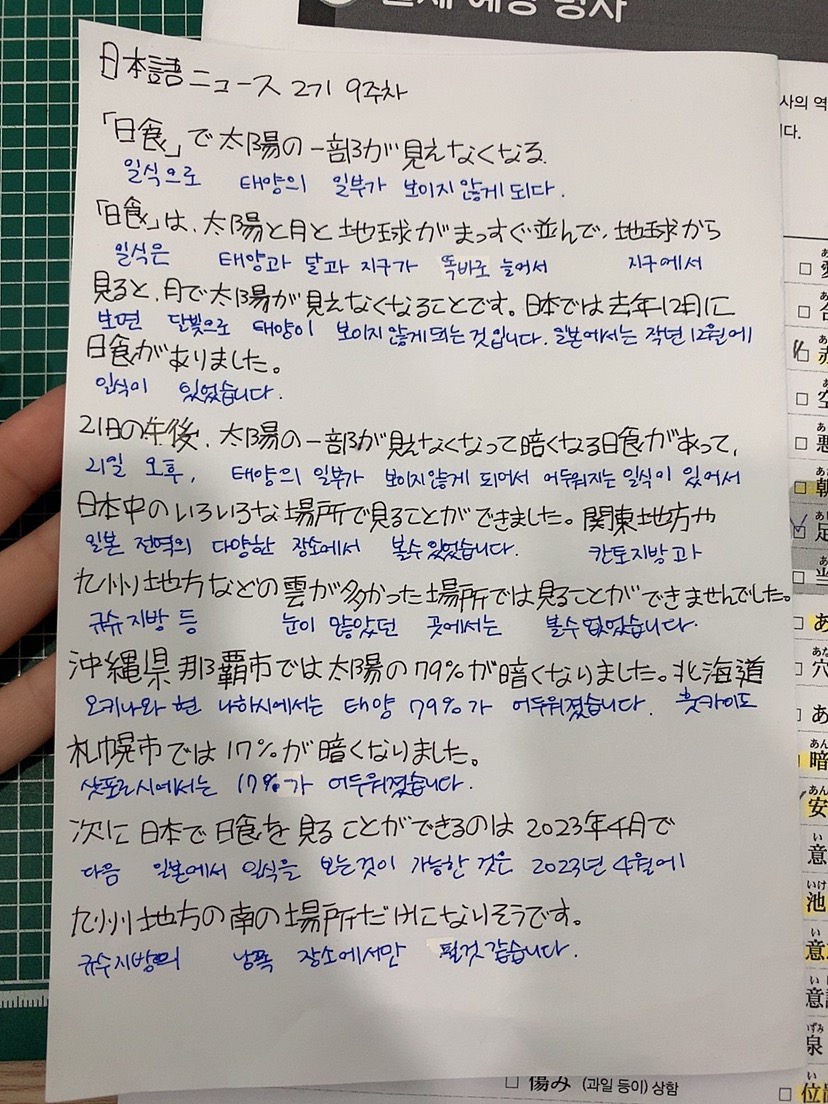 日本語ニュース 2기 9주차
「日食」で太陽の一部が見えなくなる.
일식으로 태양의 일부가 보이지 않게 되다.
「日食」は、太陽と月と地球がまっすぐ並んで、地球から
일식은 태양과 달과 지구가 똑바로 늘어서 지구에서
見ると、月で太陽が見えなくなることです。日本では去年12月に
보면 달빛으로 태양이 보이지 않게 되는 것입니다. 일본에서는 작년 12월에
日食がありました。
일식이 있었습니다.
21日の午後、太陽の一部が見えなくなって暗くなる日食があって、
21일 오후, 태양의 일부가 보이지 않게 되어서 어두워지는 일식이 있어서
日本中のいろいろな場所で見ることができました。関東地方や
일본 전역의 다양한 장소에서 볼수 있었습니다. 칸토지방과
九州地方などの雲が多かった場所では見ることができませんでした。
규슈지방 등 눈이 많았던 곳에서는 볼수 없었습니다.
沖縄県那覇市では太陽の79%が暗くなりました。北海道
오키나와 현 나하시에서는 태양 79%가 어두워졌습니다. 홋카이도
札幌市では17%が暗くなりました。
삿포로시에서는 17%가 어두워졌습니다.
次に日本で日食を見ることができるのは2023年4月で
다음 일본에서 일식을 보는것이 가능한 것은 2023년 4월에
九州地方の南の場所だけになりそうです。
규수지방의 남쪽 장소에서만 될것 같습니다.
傷み (과일 등이) 상함